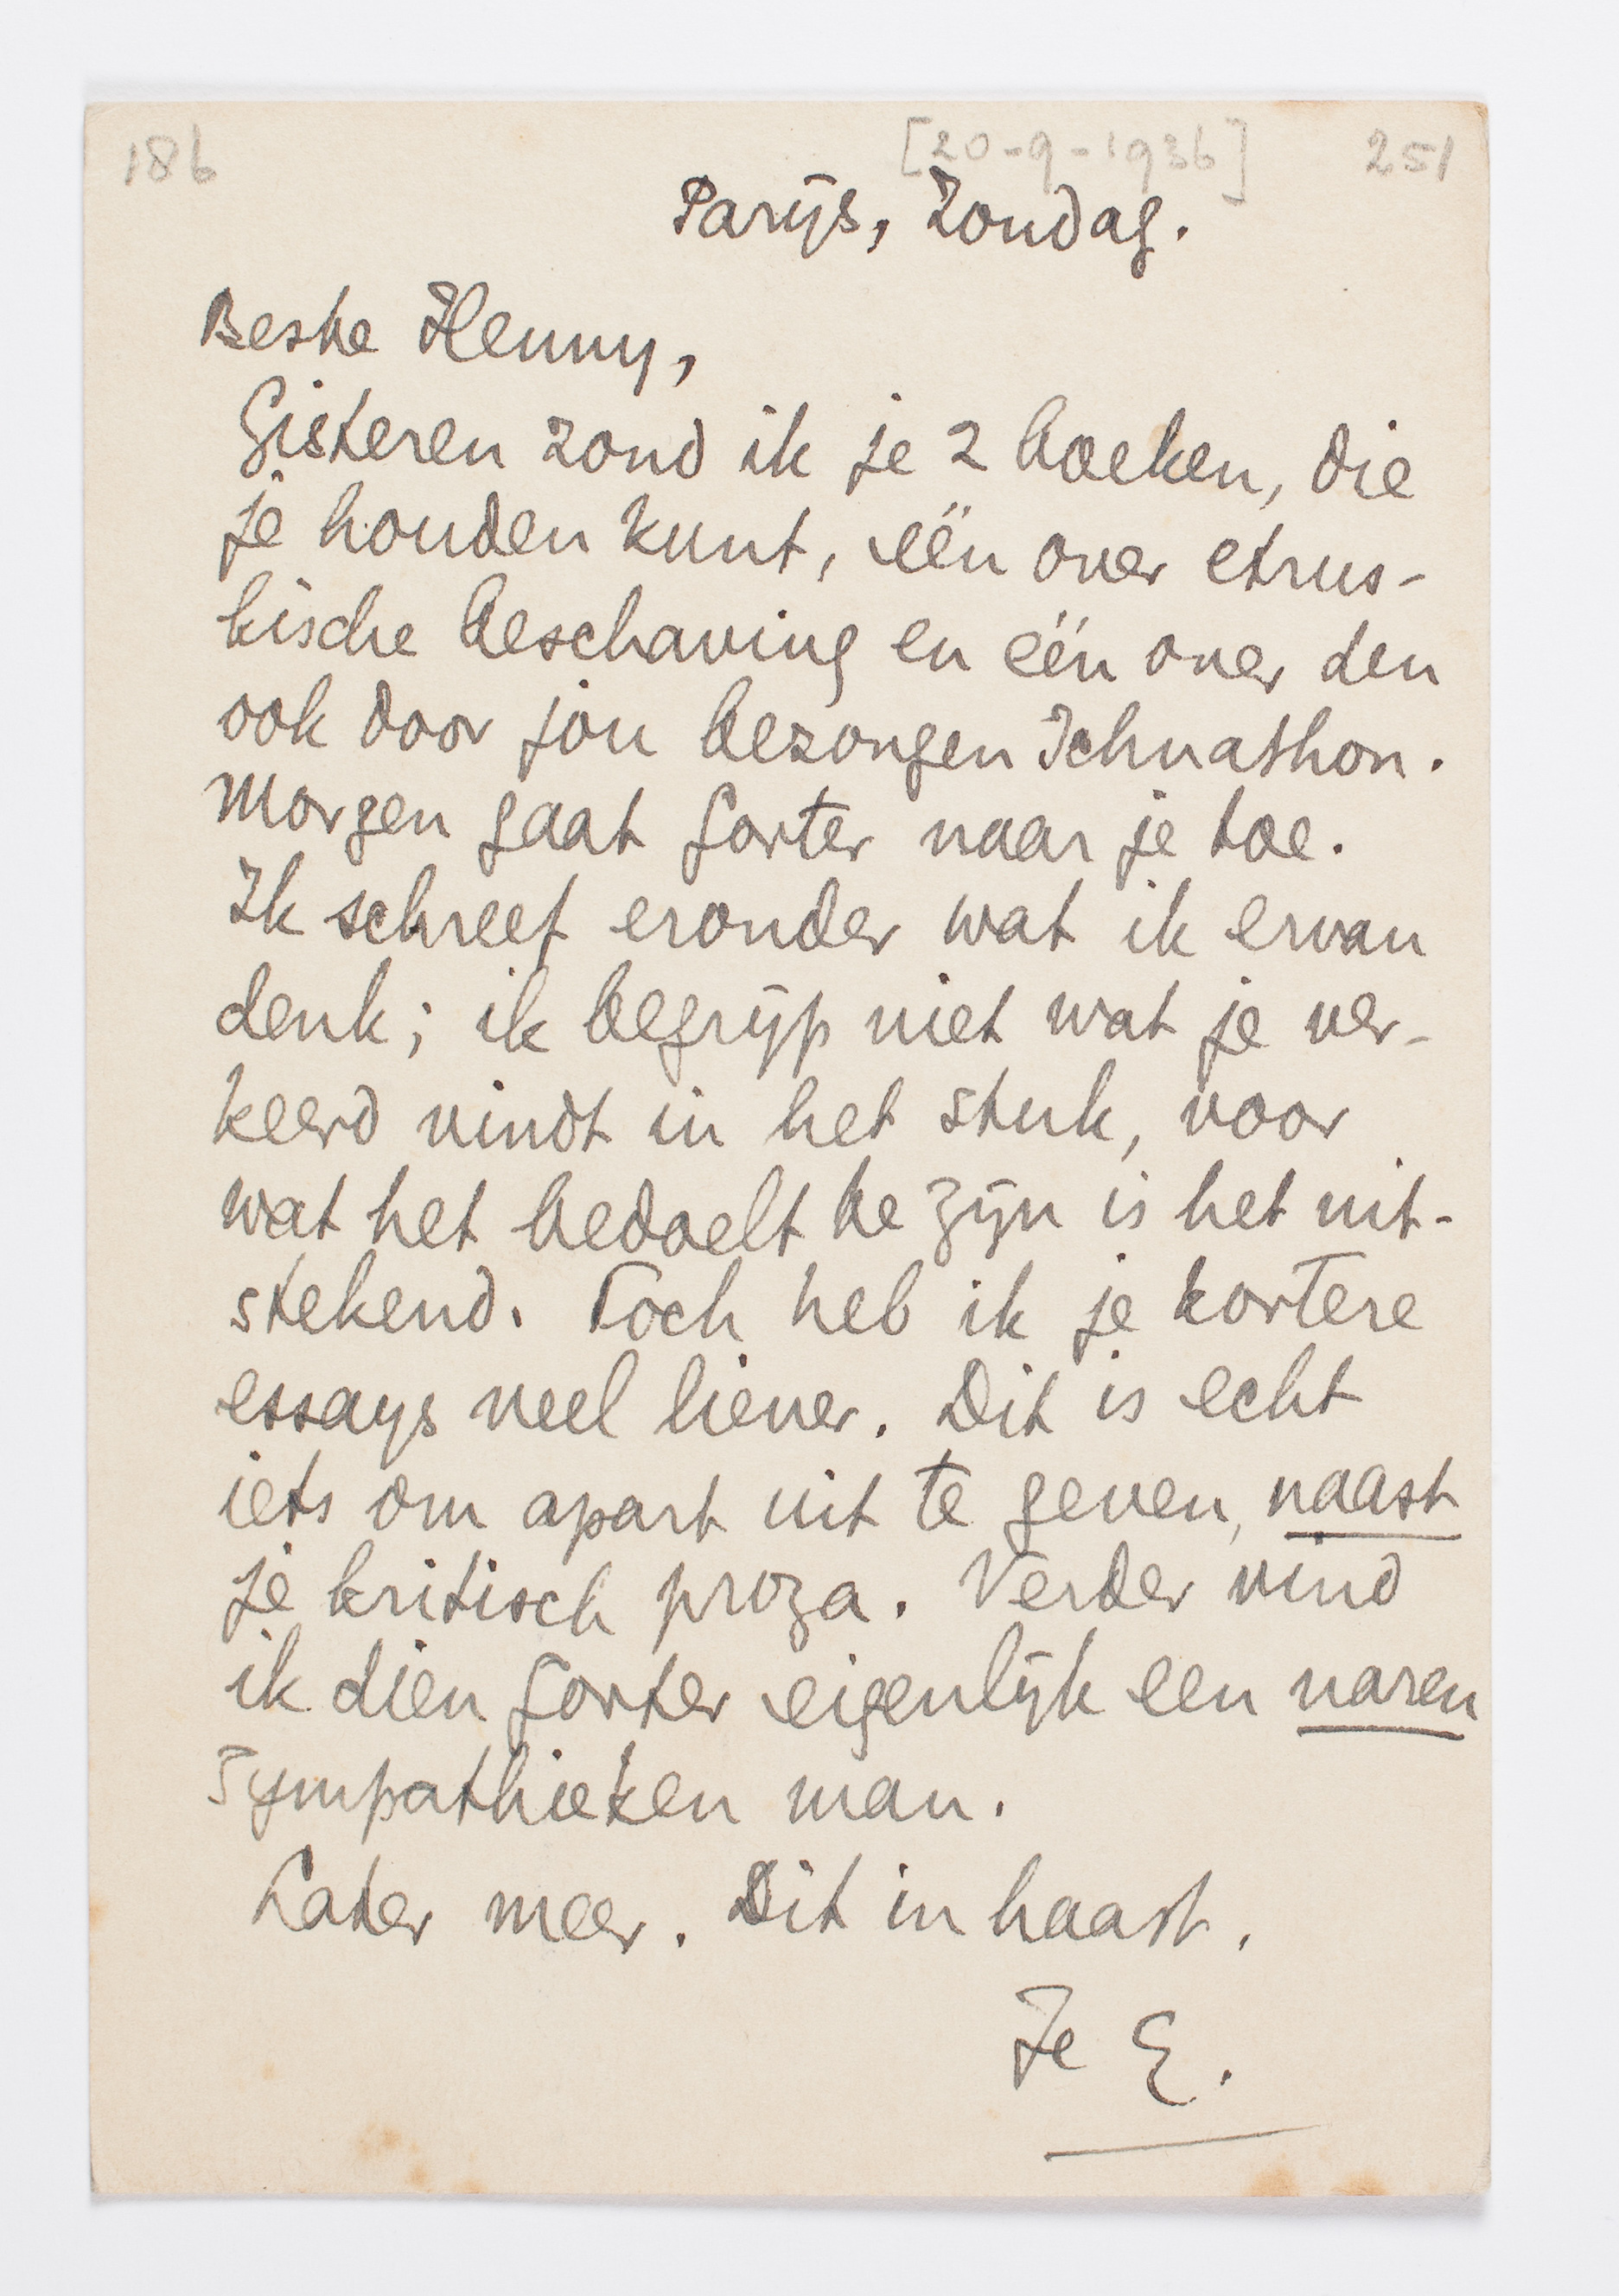 186 [20-9-1936] 251
Parijs, Zondag.
Beste Henny,
Gisteren zond ik je 2 boeken, die
je houden kunt, één over etrus-
kische beschaving en één over den
ook door jou bezongen Ichnathon.
Morgen gaat Gorter naar je toe.
Ik schreef eronder wat ik ervan
denk; ik begrijp niet wat je ver-
keerd vindt in het stuk, voor
wat het bedoelt te zijn is het uit-
stekend. Toch heb ik je kortere
essays veel liever. Dit is echt
iets om apart uit te geven, naast
je kritisch proza. Verder vind
ik dien Gorter eigenlijk een naren
sympathieken man.
Later meer. Dit in haast.
Je E.